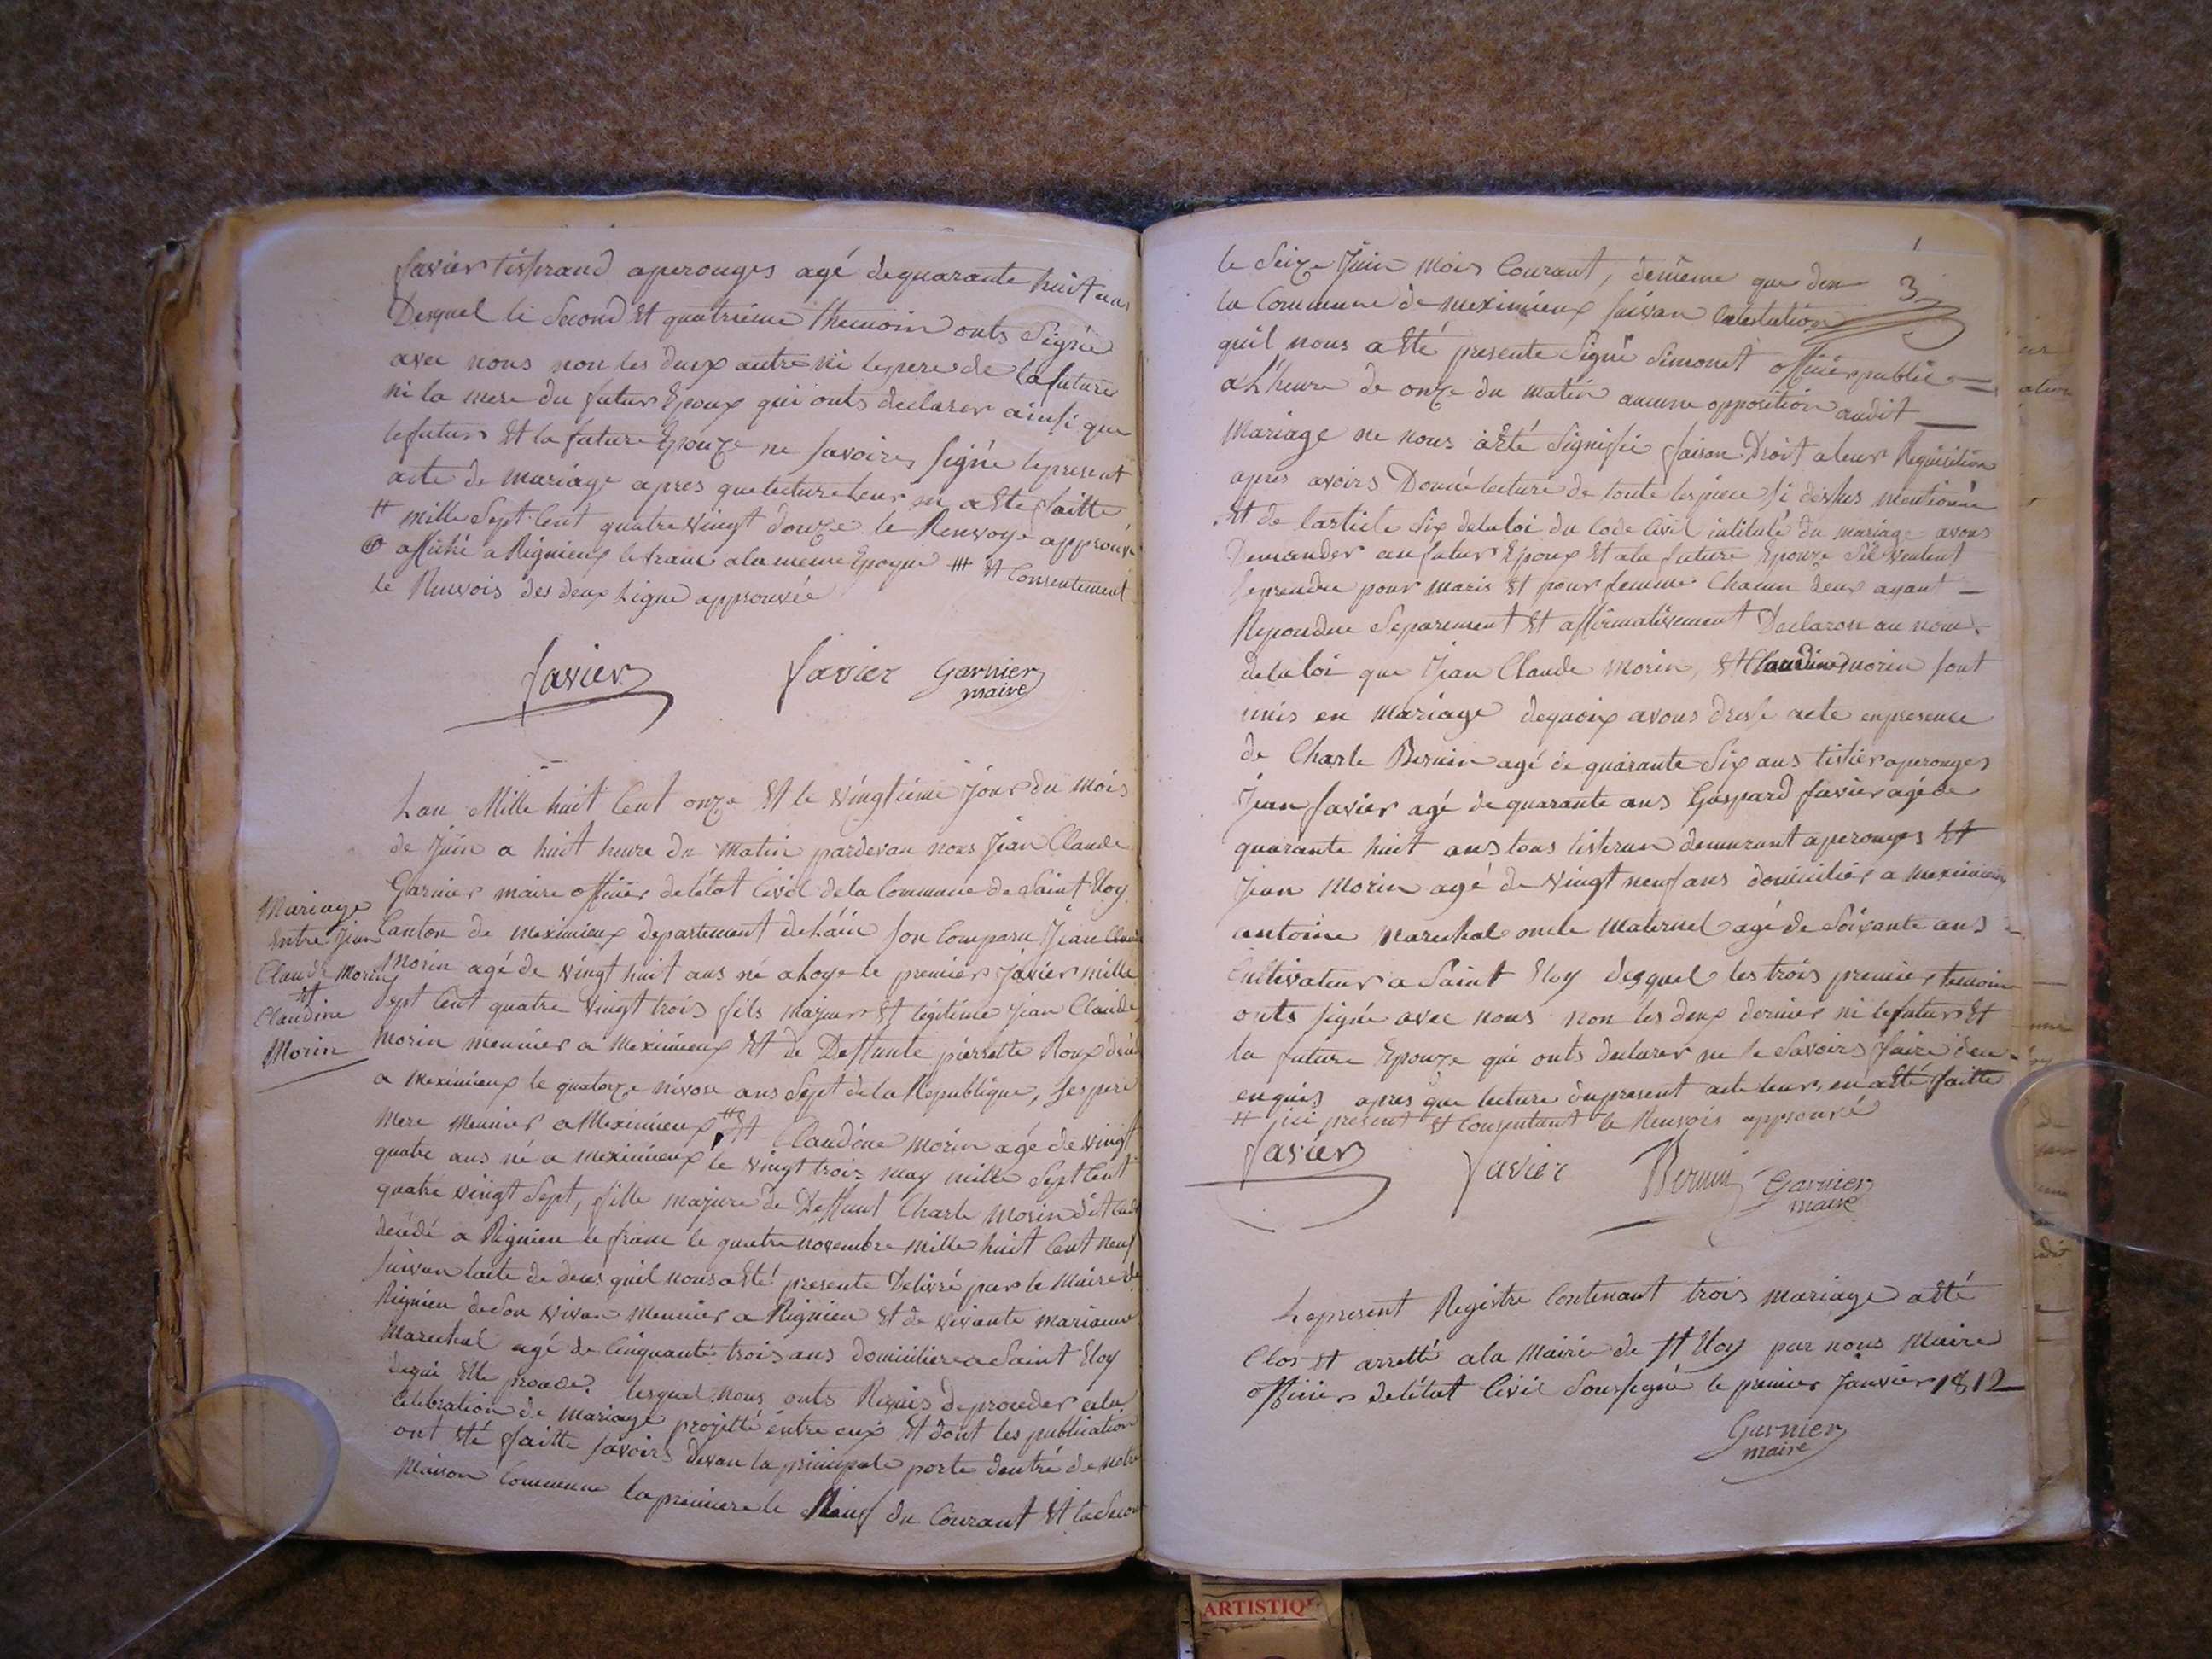 favier tisserand aperouges agé de quarante huit ans
Desquel le Second Et quatrieme themoin onts Signée
avec nous non les deux autre ni le pere de la future
ni la mere du futur Epoux qui onts declarer ainsi que
le futur Et la future Epouze ne savoires signée le present
acte de mariage apres que lecture leur en a Eté faitte
# mille Sept Cent quatre Vingt douze le Renvoye approuvé
affiché a Rignieux le franc a la meme Epoque ### Et Consentement
le Renvois des deux Ligne approuvée
favier favier Garnier
maire
Lan Mille huit Cent onze Et le Vingtieme jour du Mois
de Juin a huit heure du Matin pardevan nous Jean Claude
Garnier maire officier de létat Civil de la Commune de Saint Eloy
Mariage
Entre Jean
Claude Morin
Et
Claudine
Morin
Canton de meximieux departement de Láin son Comparu Jean Claude
Morin agé de Vingt huit ans né a Loye le premier Javier mille
sept Cent quatre Vingt trois fils Majeur Et légitime Jean Claude
Morin meunier a Meximieux Et de Deffunte pierrette Roux
a Meximieux le quatorze nivose ans Sept de la Republique, ses pere
Mere Meunier a Meximieux # Et Claudine Morin agé de vingt
quatre ans né a meximieux le Vingt trois may mille Sept Cent
quatre Vingt Sept, fille majeure de Deffunt Charle Morin
décédé a Rignieu le franc le quatre novembre Mille huit Cent neuf
suivan lacte de deces quil nous a Eté presente Delivré par le Maire de
Rignieu de Son Vivan Meunier a Rignieu Et de Vivante Marianne
Marechal agé de Cinquante trois ans domiciliere a Saint Eloy
Lesquel nous onts Requis de proceder a la
Celebration de Mariage projetté entre eux Et dont les publication
ont Eté faitte savoirs devan la principale porte dentré de notre
Maison Commune la premiere le Neuf du Courant Et la Secon
3
le Seize Juin Mois Courant, de meme que den
la Commune de Meximieux suivan latestation
quil nous a Eté presente Signé Simonet officier public
a L'heure de onze du matin aucune opposition audit
Mariage ne nous a Eté Signifié faison Droit a leur Requisition
apres avoirs Donné lecture de toute les piece si dessus mentionée
Et de larticle Six de la loi du Code Civil intitulé du mariage avons
Demander au futur Epoux Et a la future Epouze Sil veulent
se prendre pour maris Et pour femme Chacun deux ayant
Repondue Separement Et affirmativement Declaron au nom
de la loi que Jean Claude Morin, Et Claudine Morin sont
unis en Mariage dequoix avons dressé acte en presence
de Charle Bernin agé de quarante Six ans tistier aperouges
Jean favier agé de quarante ans Gaspard favier agé de
quarante huit ans tous tisseran demeurant aperouges Et
Jean Morin agé de Vingt neuf ans domicilier a Meximieux
antoine Marechal oncle Maternel agé de Soixante ans
Cultivateur a Saint Eloy desquel les trois premier temoin
onts signée avec nous non les deux dernier ni le futur Et
la future Epouze qui onts declarer ne le Savoirs faire deu
enquis apres que lecture du present acte leur, en a Eté faitte
# ici present Et Consentant le Renvois approuvé
favier favier Bernin Garnier
maire
Le present Registre Contenant trois Mariage a Eté
Clos Et arretté a la Mairie de St Eloy par nous Maire
officier de létat Civil Soussigné le premier Janvier 1812
Garnier
maire
ARTISTIQ